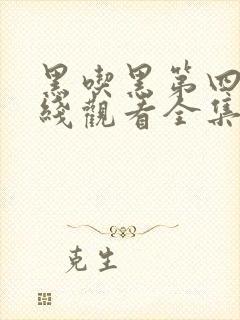 黑喫黑第四
綫觀看全集
克生